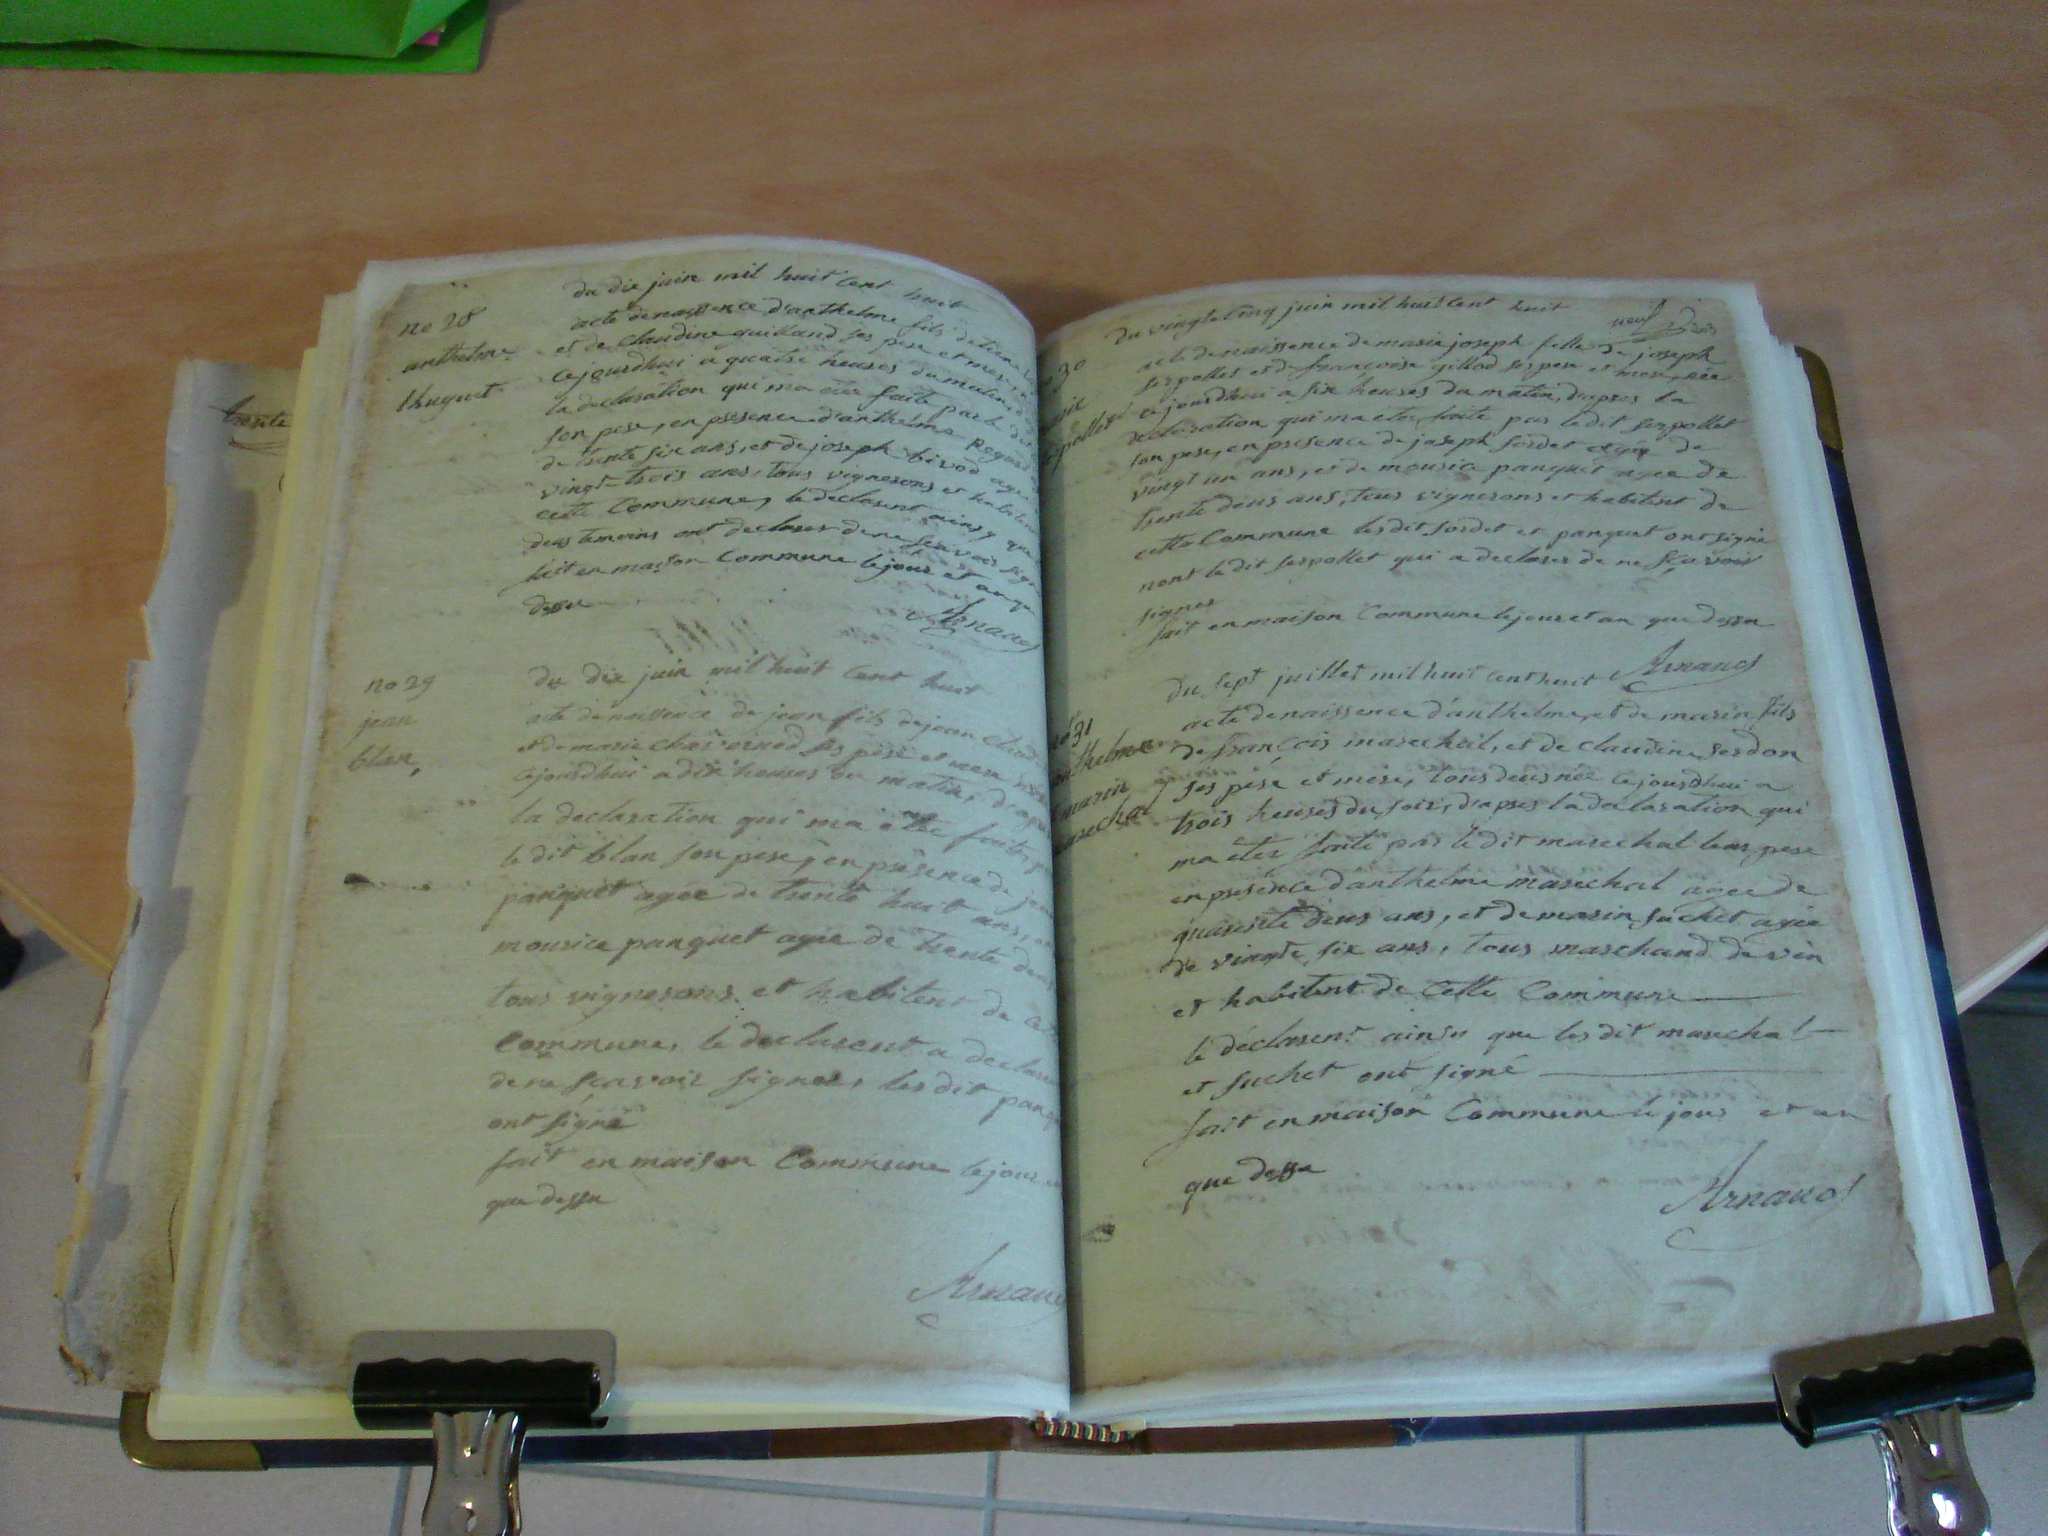 trente
no 28
anthelme
huguet
du dix juin mil huit cent huit
acte de naissence d'anthelme fils
et de claudine guilland ses pere et mere
cejourdhui a quatre heures du matin
la declaration qui ma ete faite par le dit
son pere, en presence d'anthelme
de trente six ans, et de joseph bivod age
vingt trois ans, tous vignerons et
cette Commune, le declarent ainsy que
deus temoins ont declarer de ne scavoir
fait en maison Commune le jour et an
dessu
Arnaud
no 29
jean
blan,
du dix juin mil huit cent huit
acte de naissence de jean fils de jean
et de marie ses pere et mere
cejourdhui a dix heures du matin, d'apres
la declaration qui ma êtee faite
le dit blan son pere, en présence de
panquet agée de trente huit ans,
mourice panquet agée de trente deus
tous vignerons et habitent de
Commune, le declarent a declarer
de ne scavoir signer, les dit
ont signé
fait en maison Commune le jour
que dessu
Arnaud
neuf
30
du vingt cinq juin mil huit cent huit
acte de naissence de marie joseph fille de joseph
serpollet et de francoise gillod ses pere et mere, née
cejourdhui a six heures du matin, d'apres la
declaration qui ma ete faite par le dit serpollet
son pere, en presence de joseph sordet agée de
vingt un ans, et de mourice panquet agée de
trente deus ans, tous vignerons et habitent de
cette Commune les dit sordet et panquet ont signé
nont le dit serpollet qui a declarer de ne scavoir
signer
fait en maison Commune le jour et an que dessu
Arnaud
31
marin
du sept juillet mil huit cent huit
acte de naissence d'anthelme, et de marin fils
de françois marechal, et de claudine serdon
ses pére et mére, tous deus née cejourdhui a
trois heures du soir, d'apres la declaration qui
ma êtée faite par le dit marechal leur pere
en présence d'anthelme marechal agée de
quarente deus ans, et de marin suchet agée
de vingte six ans, tous marchand de vin
et habitent de cette Commune
le déclarent ainsy que les dit marechal
et suchet ont signé
fait en maison Commune le jour et an
que dessu
Arnaud